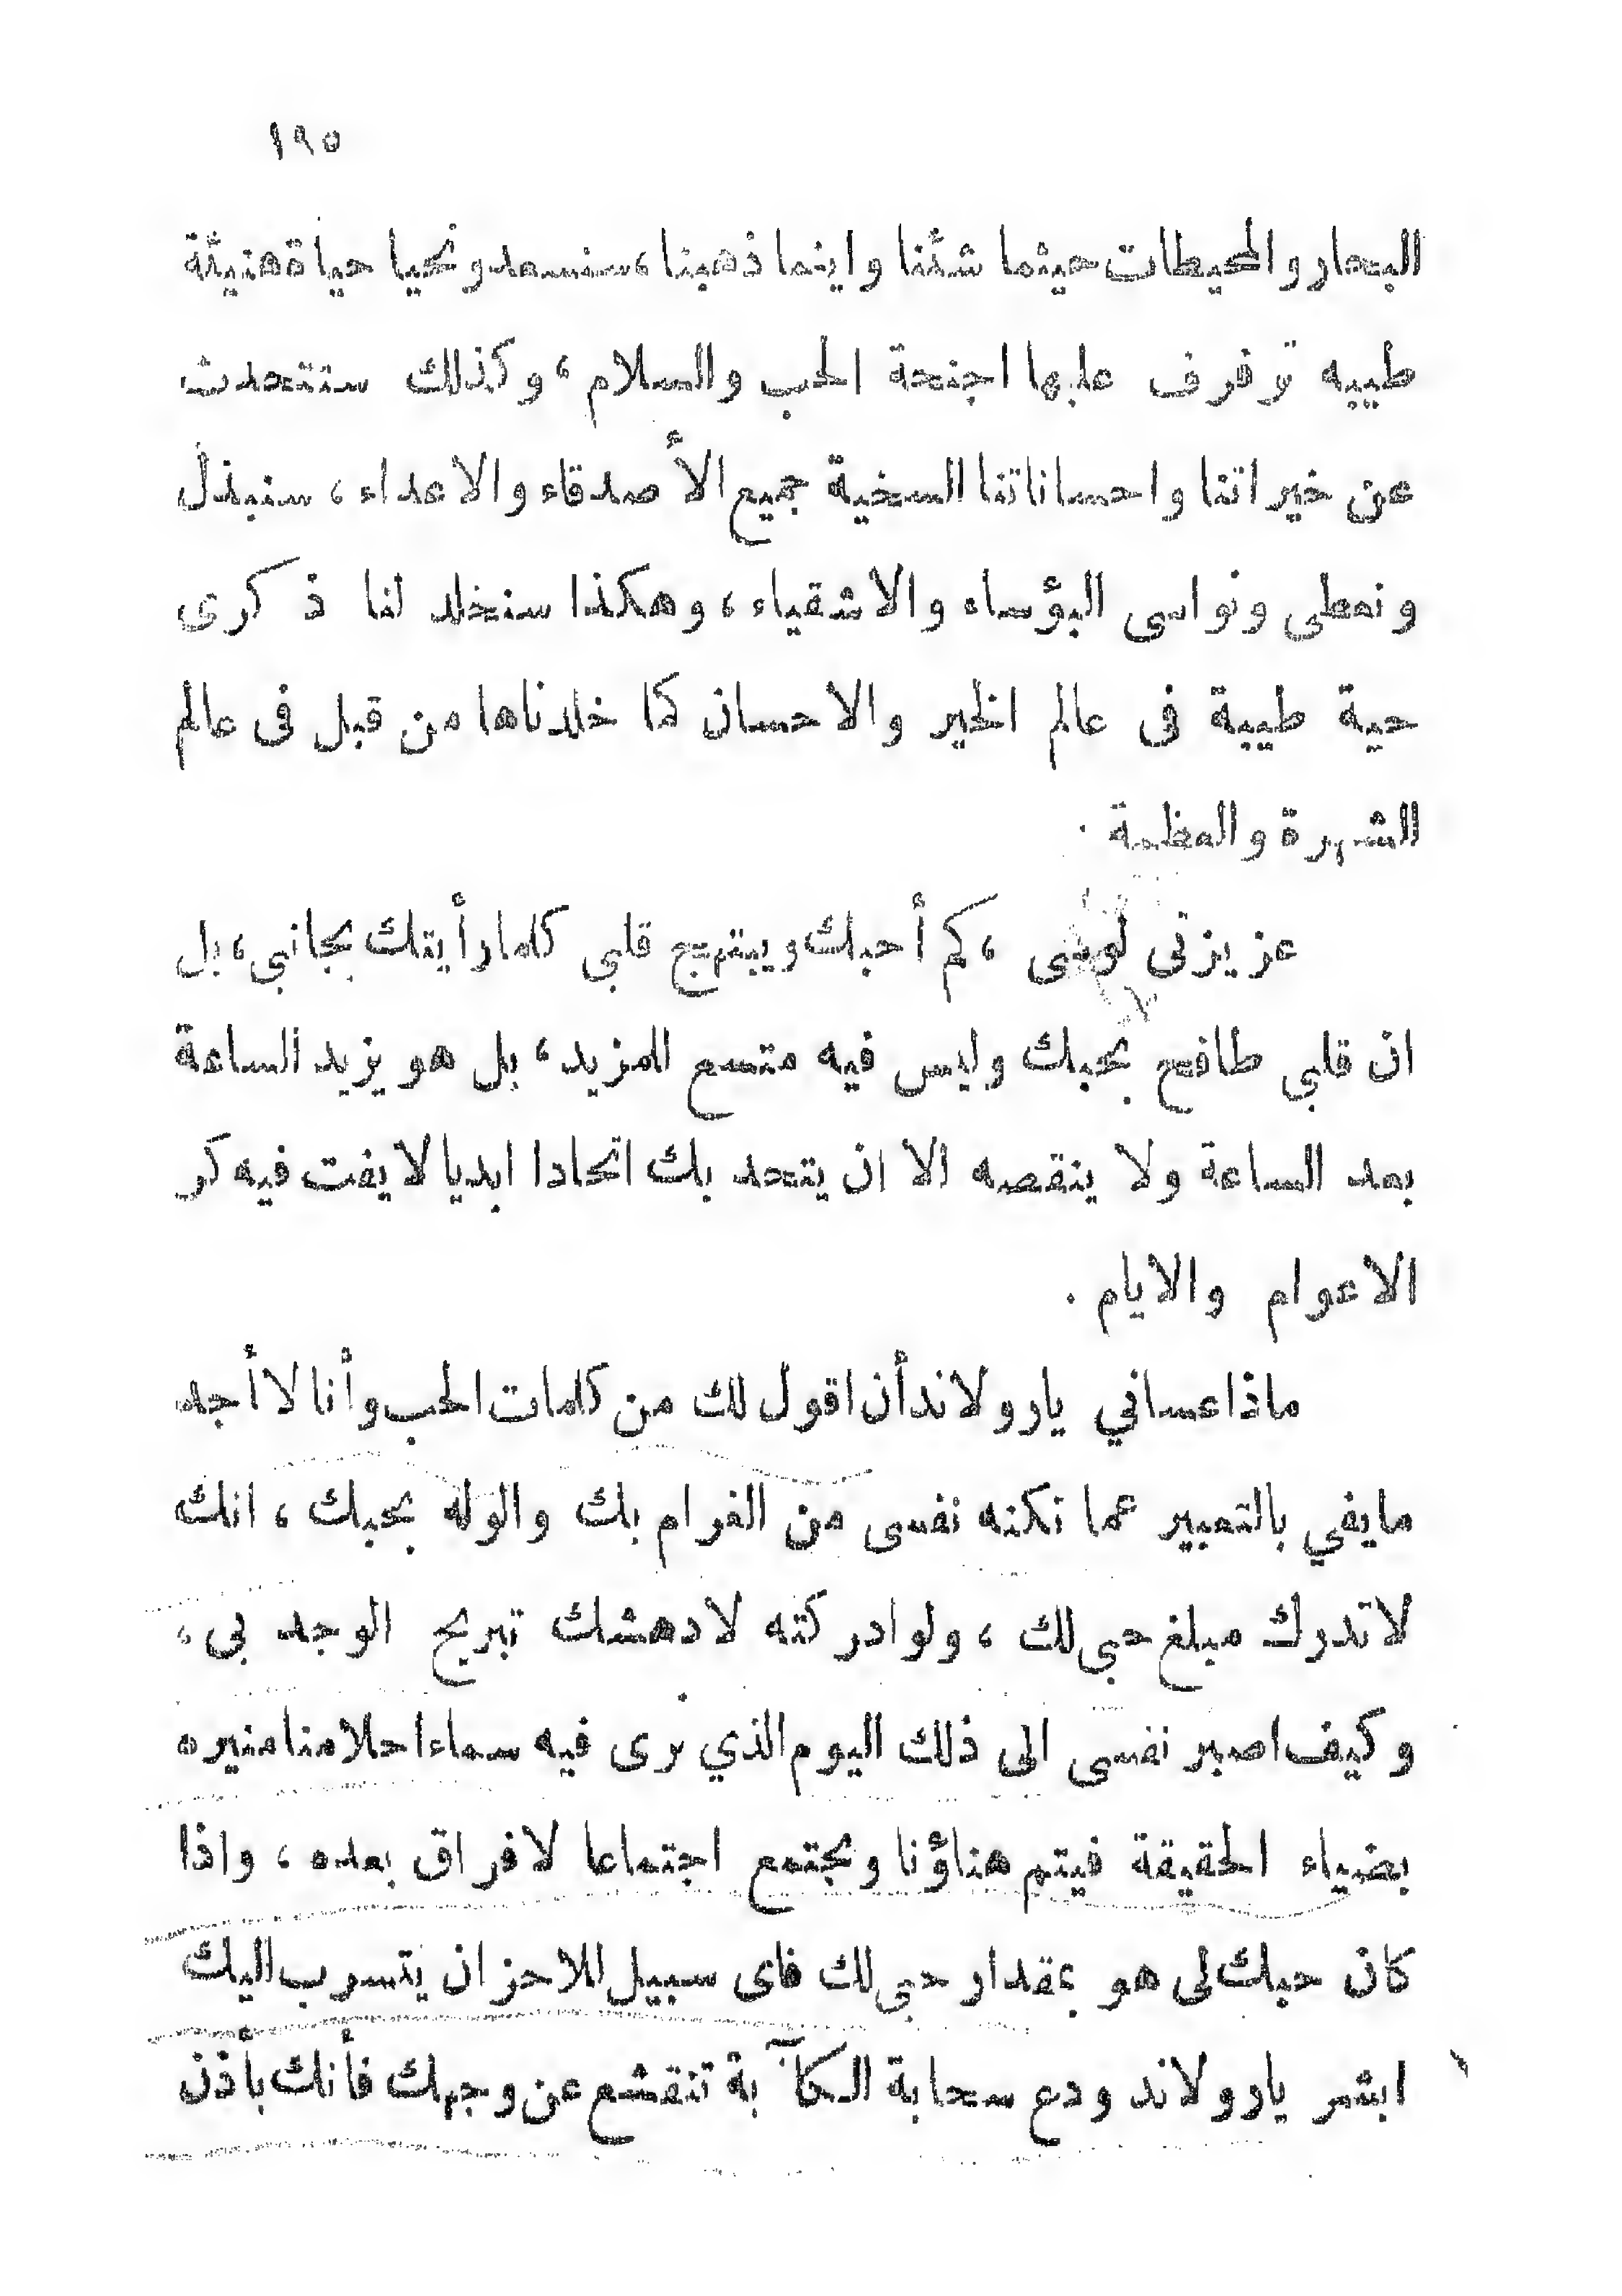 ١٩٥
البحار والمحيطات حيثما شئنا واينما ذهبنا، سنسعد ونحيا حياة هنيئة
طيبه ترفرف عليها اجنحة الحب والسلام، وكذلك ستتحدث
عن خيراتنا واحساناتنا السخية جميع الأصدقاء والاعداء، سنبذل
ونعطى ونواسى البؤساء والاشقياء، وهكذا سنخلد لنا ذكرى
حية طيبة فى عالم الخير والاحسان كما خلدناها من قبل فى عالم
الشهرة والعظمة .
عزيزتى لوسى ، كم أحبك ويبتهج قلبي كلما رأيتك بجانبي، بل
ان قلبي طافح بحبك وليس فيه متسع للمزيد، بل هو يزيد الساعة
بعد الساعة ولا ينقصه الا ان يتحد بك اتحادا ابديا لا يفت فيه كر
الاعوام والايام .
ماذا عساني يارولاند أن اقول لك من كلمات الحب وأنا لا أجد
مايفي بالتعبير عما تكنه نفسى من الغرام بك والوله بحبك ، انك
لاتدرك مبلغ حبى لك ، ولو ادركته لادهشك تبريح الوجد بى ،
وكيف اصبر نفسى الى ذلك اليوم الذي نرى فيه سماء احلامنا منيره
بضياء الحقيقة فيتم هناؤنا ونجتمع اجتماعا لافراق بعده ، واذا
كان حبك لى هو بمقدار حبى لك فاى سبيل للاحزان يتسرب اليك
ابشر يارولاند ودع سحابة الكآبة تنقشع عن وجهك فأنك بأذن